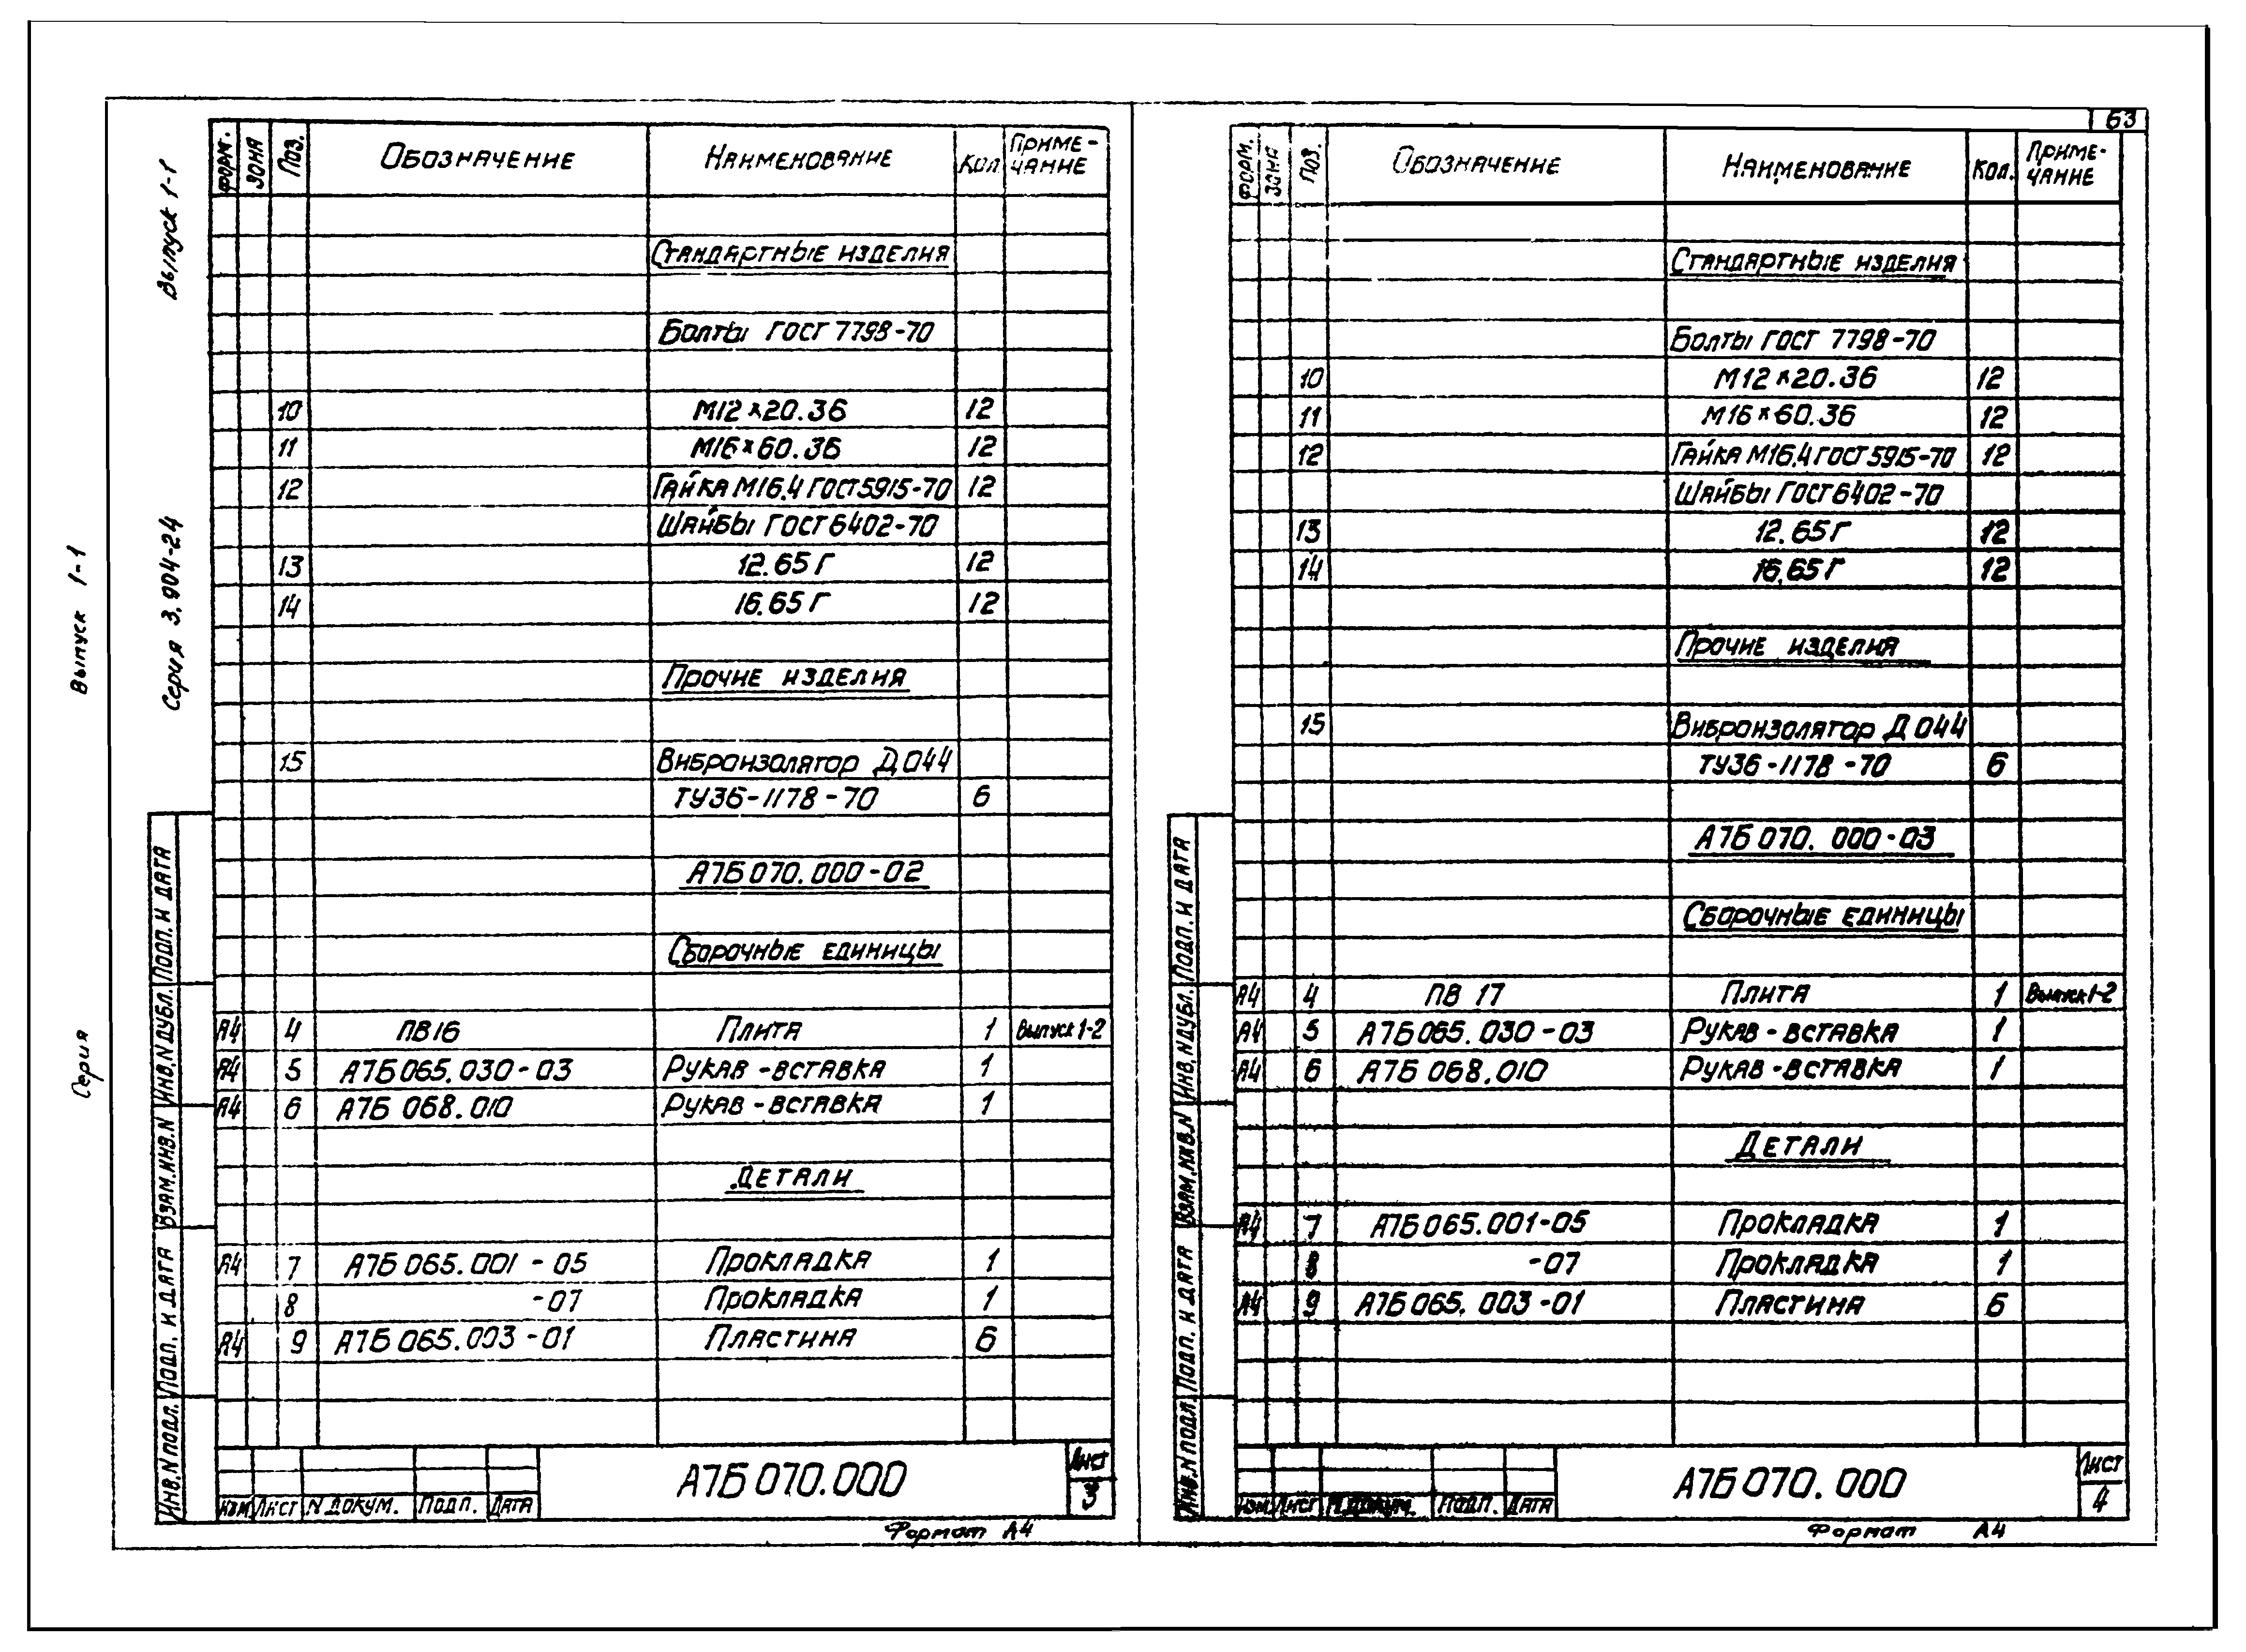 Выпуск 1-1
Серия
Выпуск 1-1
Серия 3.904-24
Форм. Зона Поз. Обозначение Наименование Кол Приме-
чание
Стандартные изделия
Болты ГОСТ 7798-70
10 М12×20.36 12
11 М16×60.36 12
12 Гайка М16.4 ГОСТ 5915-70 12
Шайбы ГОСТ 6402-70
13 12.65Г 12
14 16.65Г 12
Прочие изделия
15 Виброизолятор Д044
ТУ36-1178-70 6
А7Б070.000-02
Сборочные единицы
А4 4 ПВ16 Плита 1 Выпуск 1-2
А4 5 А7Б065.030-03 Рукав-вставка 1
А4 6 А7Б 068.010 Рукав-вставка 1
Детали
А4 7 А7Б065.001-05 Прокладка 1
8 -07 Прокладка 1
А4 9 А7Б065.003-01 Пластина 6
Инв.N подл. Подп. и дата Взам.инв.N Инв.N дубл. Подп. и дата
Изм Лист N докум. Подп. Дата
А7Б070.000
Лист
3
Формат А4
63
Форм. Зона Поз. Обозначение Наименование Кол. Приме-
чание
Стандартные изделия
Болты ГОСТ 7798-70
10 М12×20.36 12
11 М16×60.36 12
12 Гайка М16.4 ГОСТ 5915-70 12
Шайбы ГОСТ 6402-70
13 12.65Г 12
14 16.65Г 12
Прочие изделия
15 Виброизолятор Д044
ТУ36-1178-70 6
А7Б070.000-03
Сборочные единицы
А4 4 ПВ 17 Плита 1 Выпуск 1-2
А4 5 А7Б065.030-03 Рукав-вставка 1
А4 6 А7Б 068.010 Рукав-вставка 1
Детали
А4 7 А7Б065.001-05 Прокладка 1
8 -07 Прокладка 1
А4 9 А7Б065.003-01 Пластина 6
Инв.N подл. Подп. и дата Взам.инв.N Инв.N дубл. Подп. и дата
Изм Лист N докум. Подп. Дата
А7Б070.000
Лист
4
Формат А4